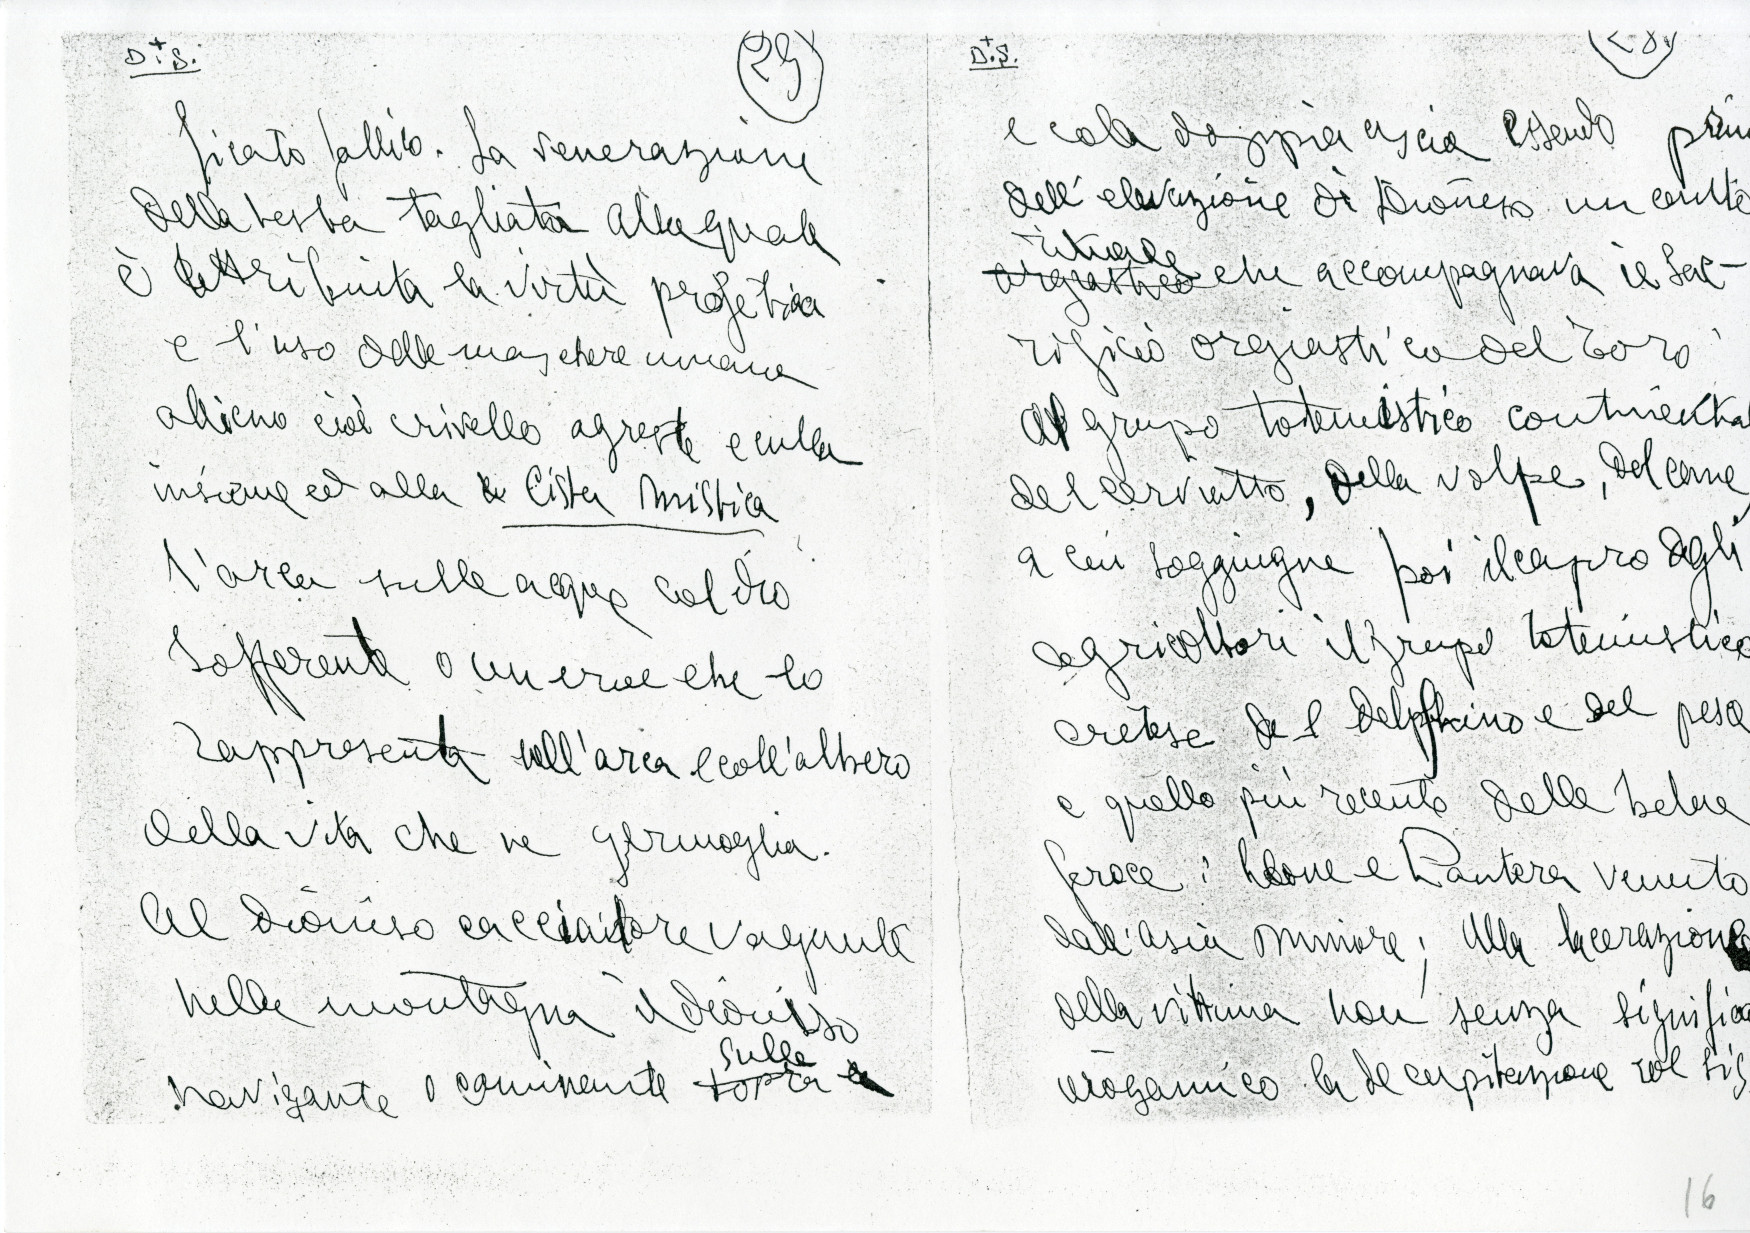 D.S.
29
ficato fallico. La venerazione
della testa tagliata alla quale
è attribuita la virtù profetica
e l'uso delle maschere umane
al cioè crivello agreste e culla
insieme ed alla Cista Mistica
l'arca sulle acque col dio
sofferente o un eroe che lo
rappresenta coll'arca e coll'albero
della vita che ne germoglia.
Al Dioniso cacciatore vagante
nelle montagna il Dioniso
sulle
navigante o camminante sopra
D.S.
28
e cola doppia ascia essendo prim
dell'elevazione di Dioniso un culto
rituale
orgiastico che accompagnava il sac-
rificio orgiastico del Toro
al grupo totemistico continental
del cerviatto, della volpe, del cane
a cui soggiugne poi il capro degli
agricoltori il grupo totemistico
cretese del delphino e del pesce
e quello più recente delle belve
feroce: leone e Pantera venuto
dall'asia minore; alla lacerazione
della vittima non senza significa
la decapitazione col sig
16